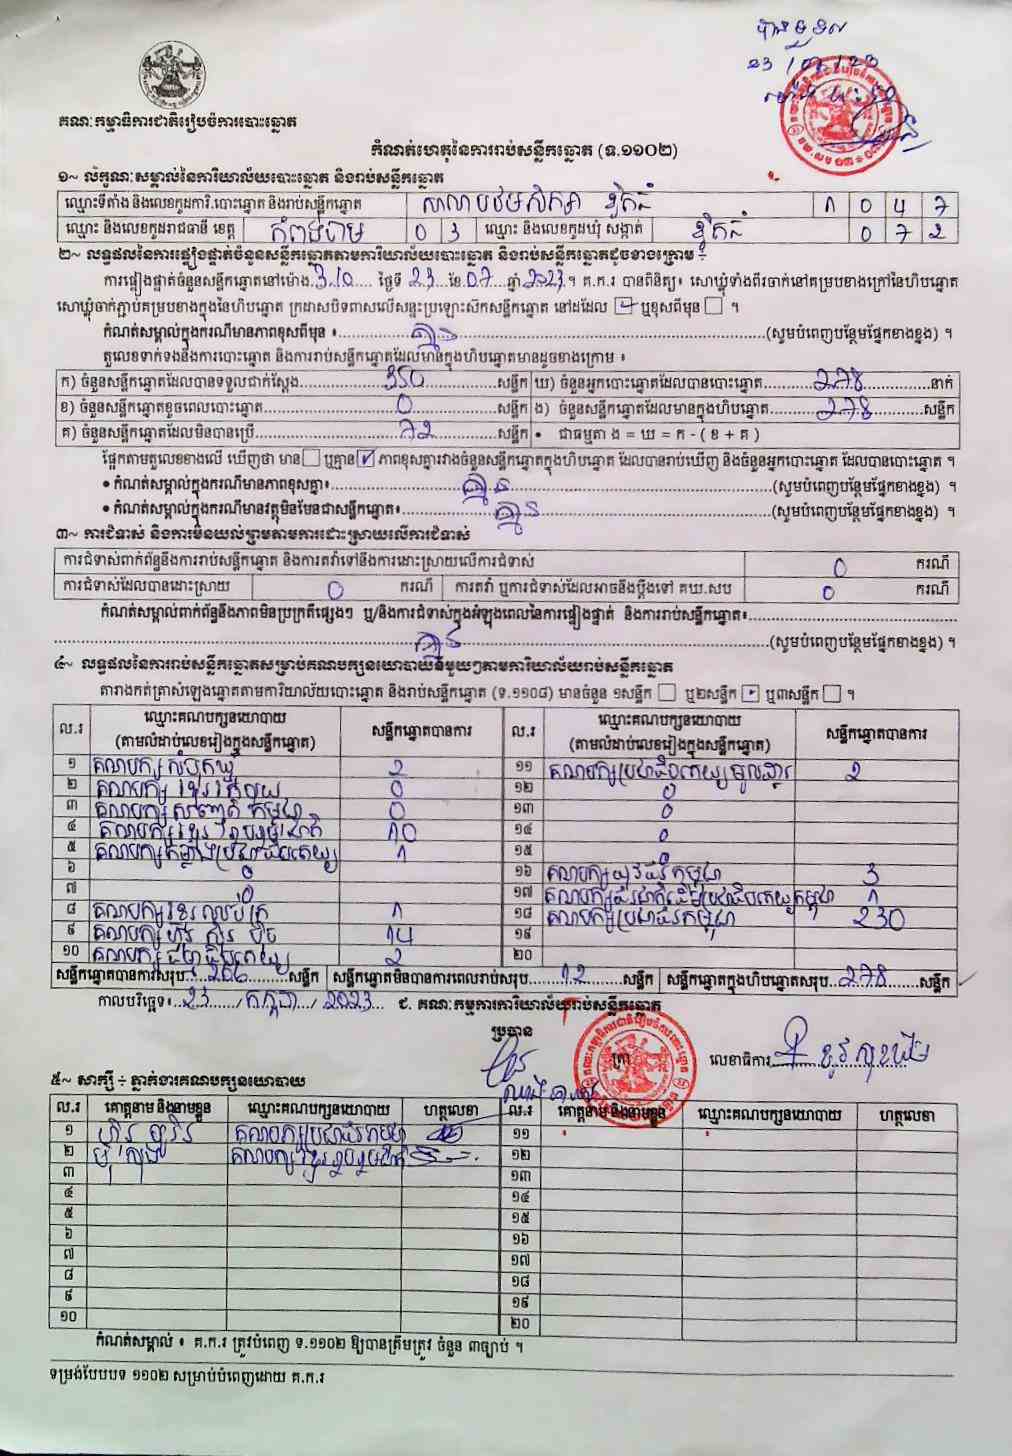 បានទទួល
23 / 07 / 23
គណៈកម្មាធិការជាតិរៀបចំការបោះឆ្នោត
កំណត់ហេតុនៃការរាប់សន្លឹកឆ្នោត (ទ.១១០២)
១~ លក្ខណៈសម្គាល់នៃការិយាល័យបោះឆ្នោត និងរាប់សន្លឹកឆ្នោត
ឈ្មោះទីតាំង និងលេខកូដការិ.បោះឆ្នោត និងរាប់សន្លឹកឆ្នោត សាលាបឋមសិក្សា ០ ៤ ៧
ឈ្មោះ និងលេខកូដរាជធានី ខេត្ត កំពង់ចាម 0 3 ឈ្មោះ និងលេខកូដឃុំ សង្កាត់ 0 7 2
២~ លទ្ធផលនៃការផ្ទៀងផ្ទាត់ចំនួនសន្លឹកឆ្នោតតាមការិយាល័យបោះឆ្នោត និងរាប់សន្លឹកឆ្នោតដូចខាងក្រោម ÷
ការផ្ទៀងផ្ទាត់ចំនួនសន្លឹកឆ្នោតនៅម៉ោង 3:10 ថ្ងៃទី 23 ខែ 07 ឆ្នាំ 2023 ។ គ.ក.រ បានពិនិត្យ៖ សោឃ្លុំទាំងពីរចាក់នៅគម្របខាងក្រៅនៃហិបឆ្នោត
សោឃ្លុំចាក់ភ្ជាប់គម្របខាងក្នុងនៃហិបឆ្នោត ក្រដាសបិទពាសលើសន្ទះប្រឡោះស៊កសន្លឹកឆ្នោត នៅដដែល ឬខុសពីមុន ។
កំណត់សម្គាល់ក្នុងករណីមានភាពខុសពីមុន ៖ គ្មាន (សូមបំពេញបន្ថែមផ្នែកខាងខ្នង) ។
តួលេខទាក់ទងនឹងការបោះឆ្នោត និងការរាប់សន្លឹកឆ្នោតដែលមានក្នុងហិបឆ្នោតមានដូចខាងក្រោម ៖
ក) ចំនួនសន្លឹកឆ្នោតដែលបានទទួលជាក់ស្តែង 350 សន្លឹក ឃ) ចំនួនអ្នកបោះឆ្នោតដែលបានបោះឆ្នោត 278 នាក់
ខ) ចំនួនសន្លឹកឆ្នោតខូចពេលបោះឆ្នោត 0 សន្លឹក ង) ចំនួនសន្លឹកឆ្នោតដែលមានក្នុងហិបឆ្នោត 278 សន្លឹក
គ) ចំនួនសន្លឹកឆ្នោតដែលមិនបានប្រើ 72 សន្លឹក • ជាធម្មតា ង = ឃ = ក - ( ខ + គ )
ផ្អែកតាមតួលេខខាងលើ ឃើញថា មាន ឬគ្មាន ភាពខុសគ្នារវាងចំនួនសន្លឹកឆ្នោតក្នុងហិបឆ្នោត ដែលបានរាប់ឃើញ និងចំនួនអ្នកបោះឆ្នោត ដែលបានបោះឆ្នោត ។
• កំណត់សម្គាល់ក្នុងករណីមានភាពខុសគ្នា៖ គ្មាន (សូមបំពេញបន្ថែមផ្នែកខាងខ្នង) ។
• កំណត់សម្គាល់ក្នុងករណីមានវត្ថុមិនមែនជាសន្លឹកឆ្នោត៖ គ្មាន (សូមបំពេញបន្ថែមផ្នែកខាងខ្នង) ។
៣~ ការជំទាស់ និងការមិនយល់ព្រមតាមការដោះស្រាយលើការជំទាស់
ការជំទាស់ពាក់ព័ន្ធនឹងការរាប់សន្លឹកឆ្នោត និងការតវ៉ាទៅនឹងការដោះស្រាយលើការជំទាស់ 0 ករណី
ការជំទាស់ដែលបានដោះស្រាយ 0 ករណី ការតវ៉ា ឬការជំទាស់ដែលអាចនឹងប្តឹងទៅ គឃ.សប 0 ករណី
កំណត់សម្គាល់ពាក់ព័ន្ធនឹងភាពមិនប្រក្រតីផ្សេងៗ ឬ/និងការជំទាស់ក្នុងអំឡុងពេលនៃការផ្ទៀងផ្ទាត់ និងការរាប់សន្លឹកឆ្នោត៖
គ្មាន (សូមបំពេញបន្ថែមផ្នែកខាងខ្នង) ។
៤~ លទ្ធផលនៃការរាប់សន្លឹកឆ្នោតសម្រាប់គណបក្សនយោបាយនីមួយៗតាមការិយាល័យរាប់សន្លឹកឆ្នោត
តារាងកត់ត្រាសំឡេងឆ្នោតតាមការិយាល័យបោះឆ្នោត និងរាប់សន្លឹកឆ្នោត (ទ.១១០៨) មានចំនួន ១សន្លឹក ឬ២សន្លឹក ឬ៣សន្លឹក ។
ល.រ ឈ្មោះគណបក្សនយោបាយ (តាមលំដាប់លេខរៀងក្នុងសន្លឹកឆ្នោត) សន្លឹកឆ្នោតបានការ ល.រ ឈ្មោះគណបក្សនយោបាយ (តាមលំដាប់លេខរៀងក្នុងសន្លឹកឆ្នោត) សន្លឹកឆ្នោតបានការ
១ គណបក្សសំបុកឃ្មុំ 2 ១១ គណបក្សប្រជាធិបតេយ្យមូលដ្ឋាន 2
២ គណបក្ស ខ្មែររីកចម្រើន 0 ១២ 0
៣ គណបក្សសញ្ជាតិកម្ពុជា 0 ១៣ 0
៤ គណបក្សខ្មែររួបរួមជាតិ 10 ១៤ 0
៥ គណបក្សកម្លាំងប្រជាធិបតេយ្យ 1 ១៥ 0
៦ 0 ១៦ គណបក្សយុវជនកម្ពុជា 3
៧ 0 ១៧ គណបក្សជនជាតិដើមប្រជាធិបតេយ្យកម្ពុជា 1
៨ គណបក្សខ្មែរឈប់ក្រ 1 ១៨ គណបក្សប្រជាជនកម្ពុជា 230
៩ គណបក្សហ៊្វុនស៊ិនប៉ិច 14 ១៩
១០ គណបក្សធម្មាធិបតេយ្យ 2 ២០
សន្លឹកឆ្នោតបានការសរុប 266 សន្លឹក សន្លឹកឆ្នោតមិនបានការពេលរាប់សរុប 12 សន្លឹក សន្លឹកឆ្នោតក្នុងហិបឆ្នោតសរុប 278 សន្លឹក
កាលបរិច្ឆេទ៖ 23 / កក្កដា / 2023 ជ. គណៈកម្មការការិយាល័យរាប់សន្លឹកឆ្នោត
ប្រធាន
ត្រា លេខាធិការ
៥~ សាក្សី ÷ ភ្នាក់ងារគណបក្សនយោបាយ
ល.រ គោត្តនាម និងនាមខ្លួន ឈ្មោះគណបក្សនយោបាយ ហត្ថលេខា ល.រ គោត្តនាម និងនាមខ្លួន ឈ្មោះគណបក្សនយោបាយ ហត្ថលេខា
១ គណបក្សប្រជាជនកម្ពុជា ១១
២ គណបក្សខ្មែររួបរួមជាតិ ១២
៣ ១៣
៤ ១៤
៥ ១៥
៦ ១៦
៧ ១៧
៨ ១៨
៩ ១៩
១០ ២០
កំណត់សម្គាល់ ៖ គ.ក.រ ត្រូវបំពេញ ទ.១១០២ ឱ្យបានត្រឹមត្រូវ ចំនួន ៣ច្បាប់ ។
ទម្រង់បែបបទ ១១០២ សម្រាប់បំពេញដោយ គ.ក.រ